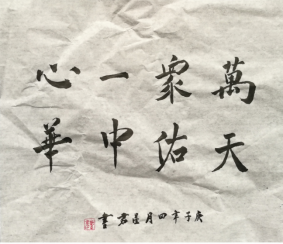 萬衆一心
天佑中華
庚子年四月書